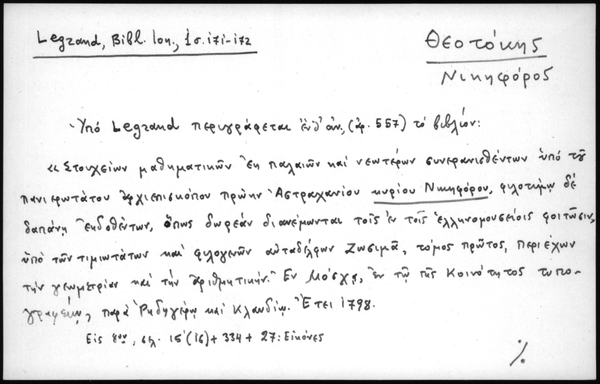 Legrand, Bibl. Ion., 1 σ. 171-172
Θεοτόκης
Νικηφόρος
Υπό Legrand περιγράφεται ἐνθ' ἀν, (ἀρ. 557) τὸ βιβλίον:
«Στοιχείων μαθηματικῶν ἐκ παλαιῶν καὶ νεωτέρων συνερανισθέντων ὑπὸ τοῦ
πανιερωτάτου ἀρχιεπισκόπου πρώην Ἀστραχανίου κυρίου Νικηφόρου, φιλοτίμῳ δὲ
δαπάνῃ ἐκδοθέντων, ὅπως δωρεὰν διανέμωνται τοῖς ἐν τοῖς ἑλληνομουσείοις φοιτῶσιν,
ὑπὸ τῶν τιμιωτάτων καὶ φιλογενῶν αὐταδέλφων Ζωσιμᾶ, τόμος πρῶτος, περιέχων
τὴν γεωμετρίαν καὶ τὴν ἀριθμητικήν. Ἐν Μόσχᾳ, ἐν τῷ τῆς Κοινότητος τυπο-
γραφείῳ, παρὰ Ῥιδηγέρῳ καὶ Κλαυδίῳ. Ἔτει 1798.
Εἰς 8ον, σελ. ιστ' (16) + 334 + 27: Εἰκόνες